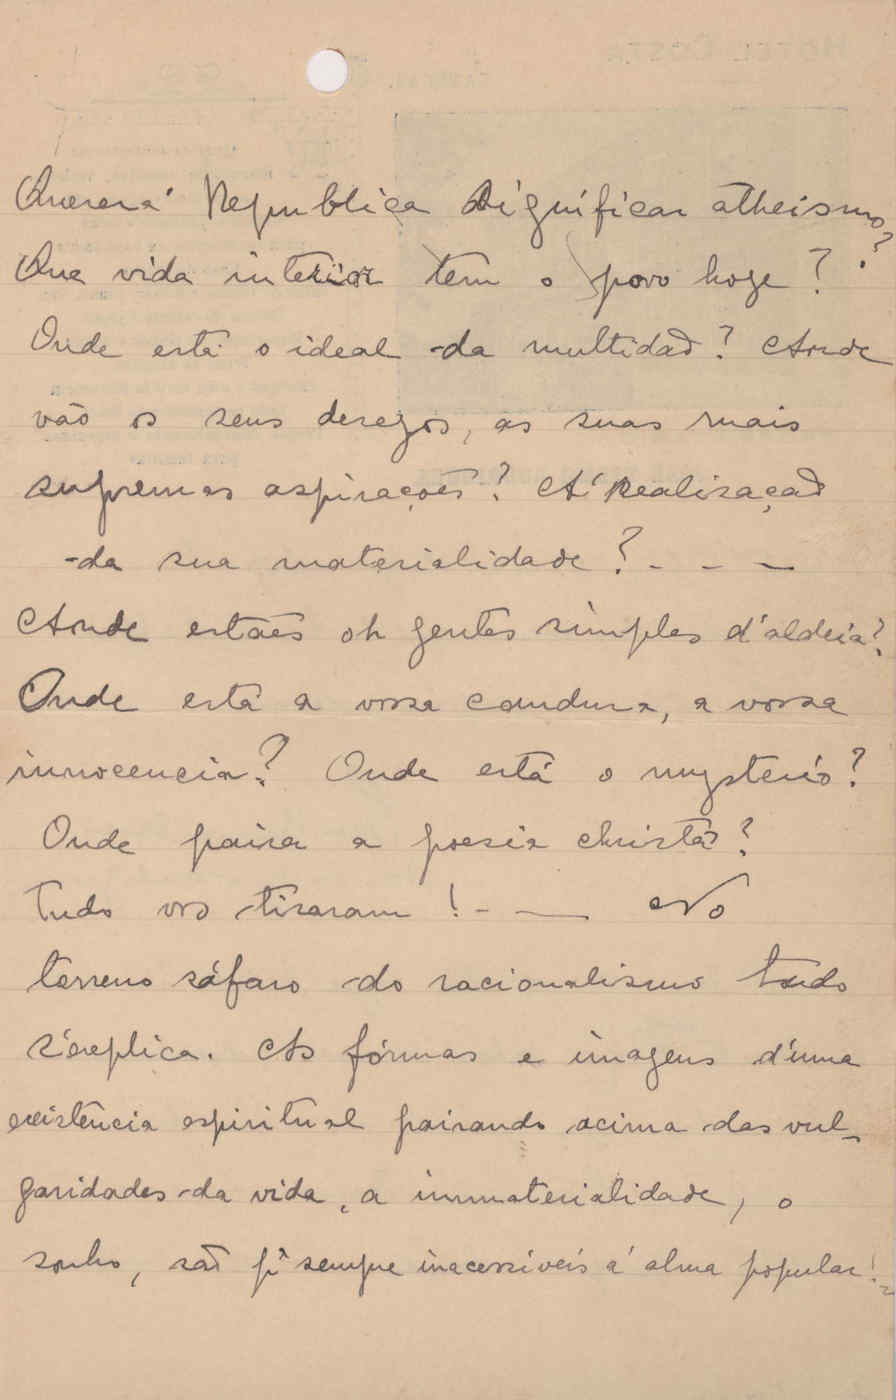 HOTEL COSTA
Quererá Republica Significar atheismo?
Que vida interior tem o povo hoje?
Onde está o ideal da multidaõ? Aonde
vão os seus desejos, as suas mais
supremas aspirações? Á Realizaçaõ
da sua materialidade? - - -
Aonde estaes oh gentes simples d'aldeia?
Onde está a vossa candura, a vossa
innocencia? Onde está o mysterio?
Onde paira a poesia christã?
Tudo vos tiraram! - — No
terreno sáfaro do racionalismo tudo
s'explica. As fórmas e imagens d'uma
existência espiritual pairando acima das vul-
garidades da vida, a immaterialidade, o
sonho, saõ pª sempre inacessíveis á alma popular!